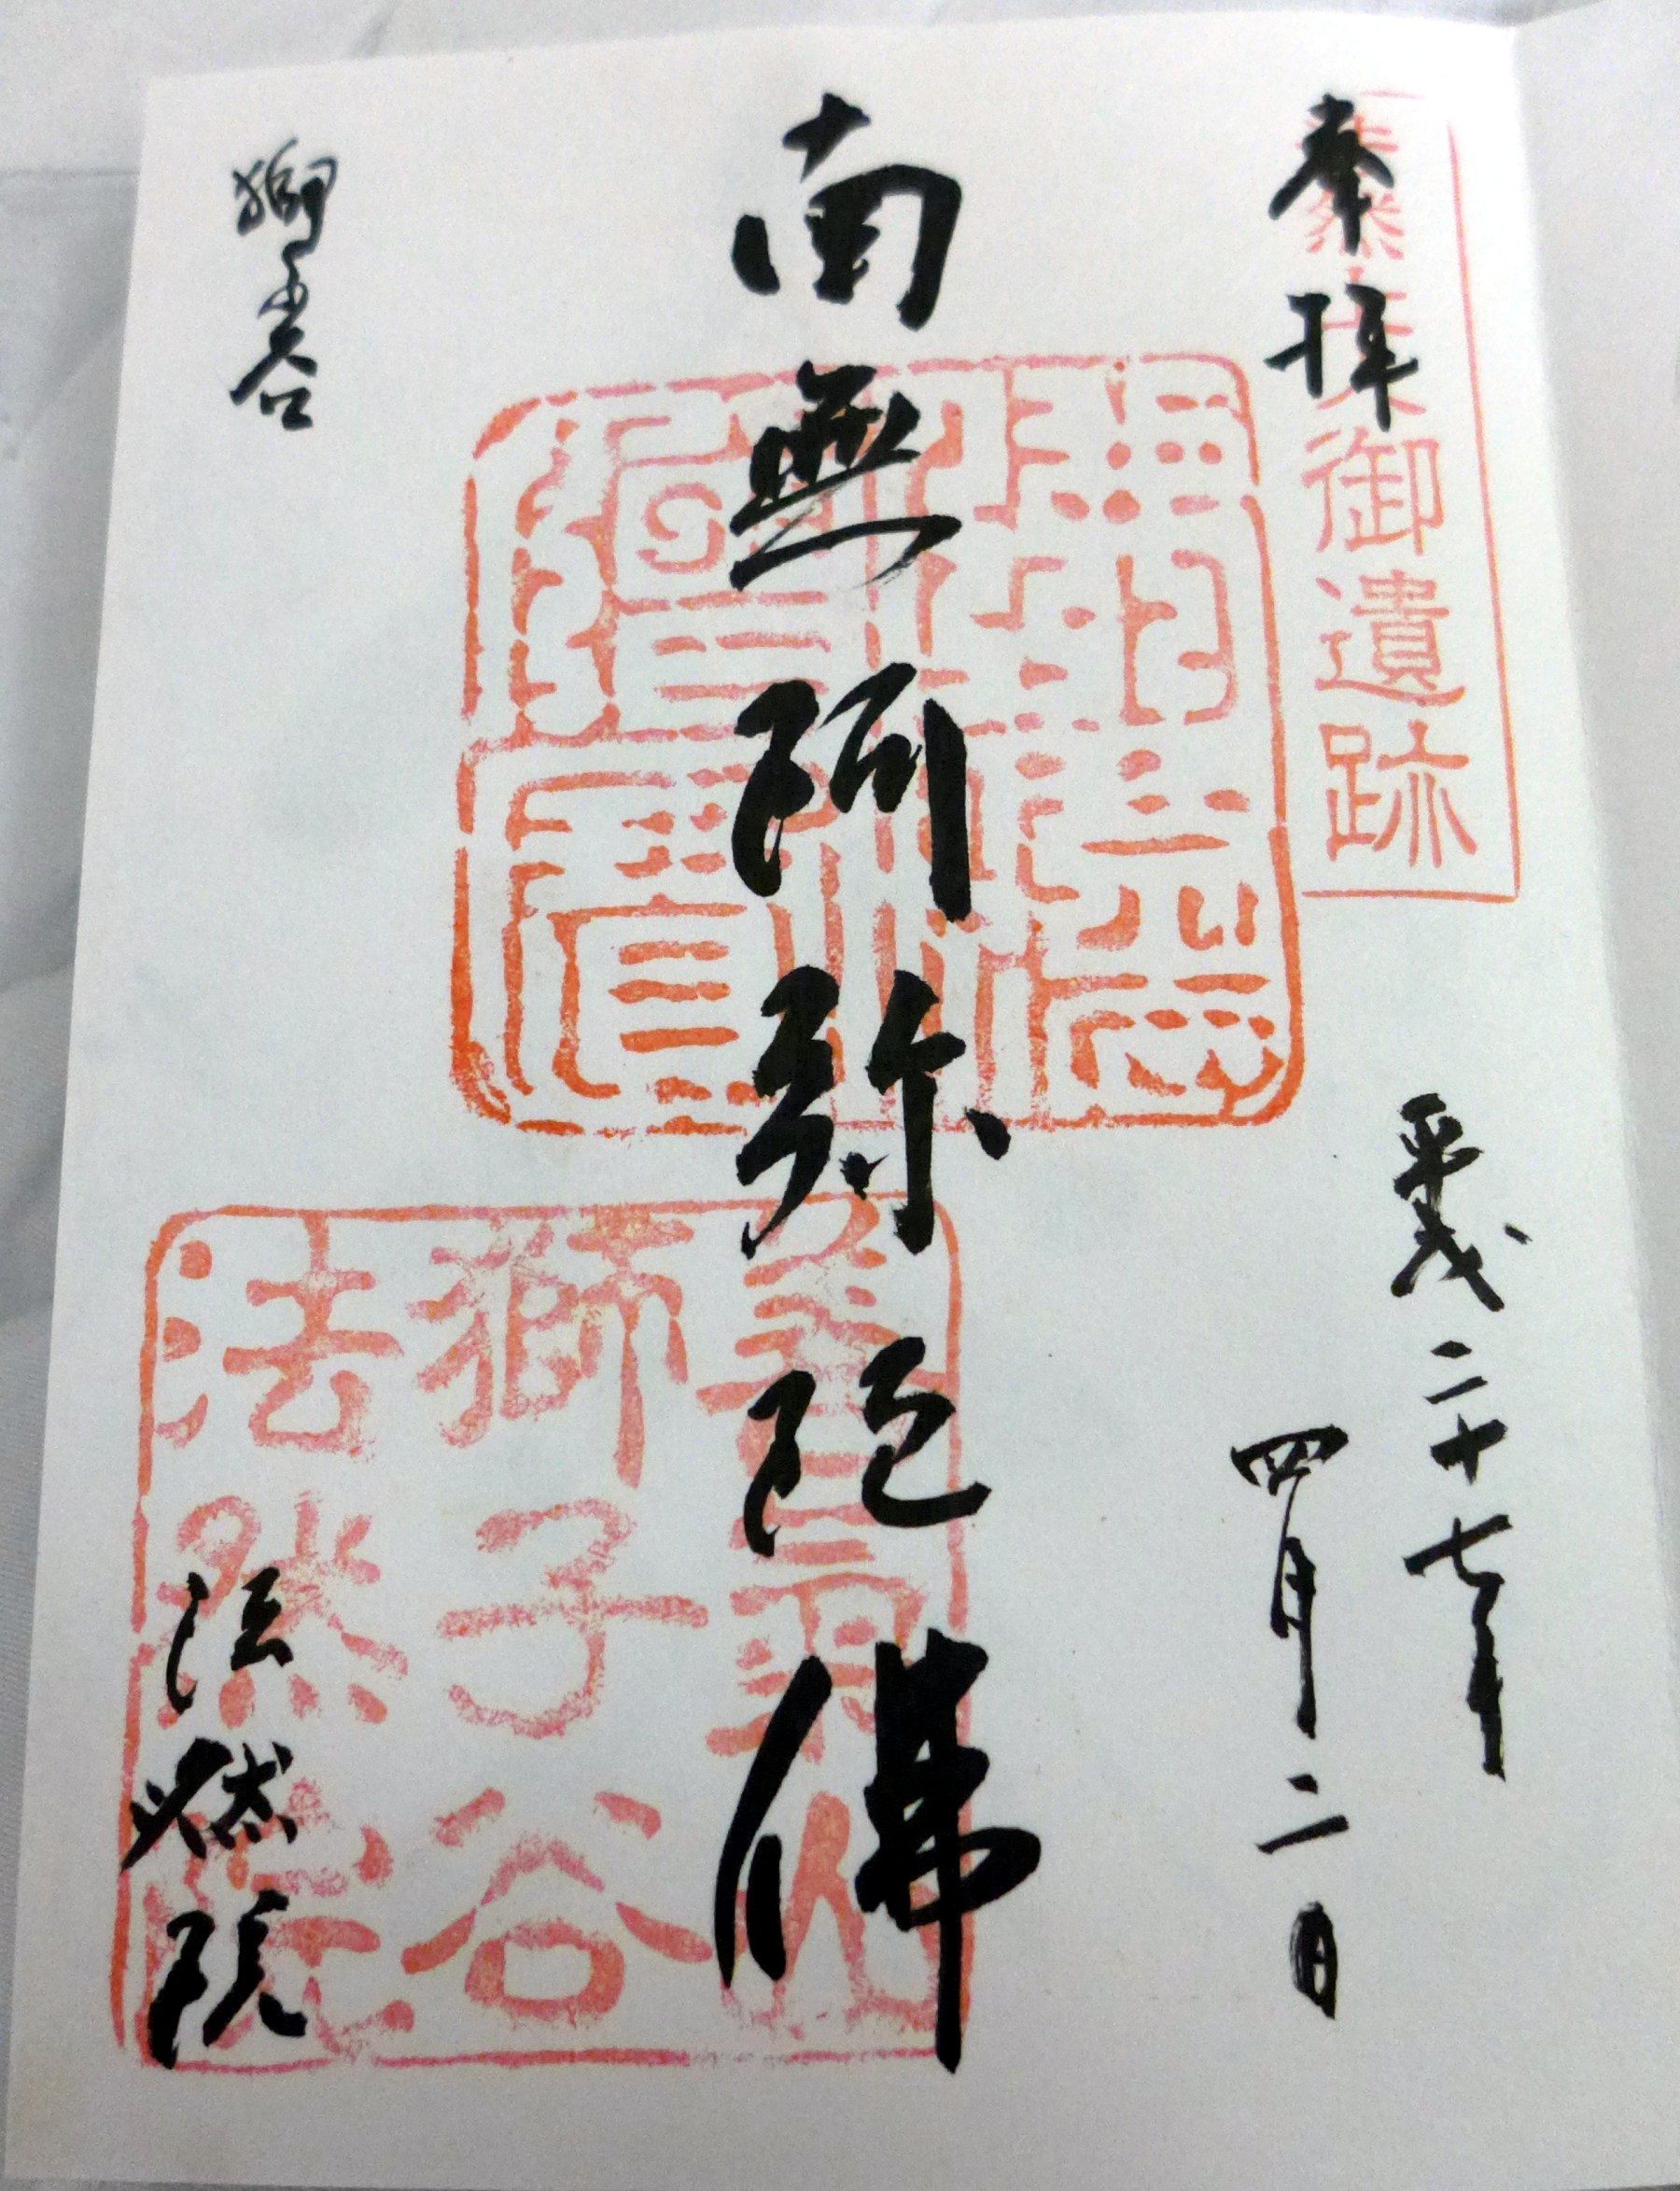 奉拝
法然上人御遺跡
平成二十七年
四月二日
南無阿弥陀佛
善氣山
獅子谷
法然院
獅子谷
法然院